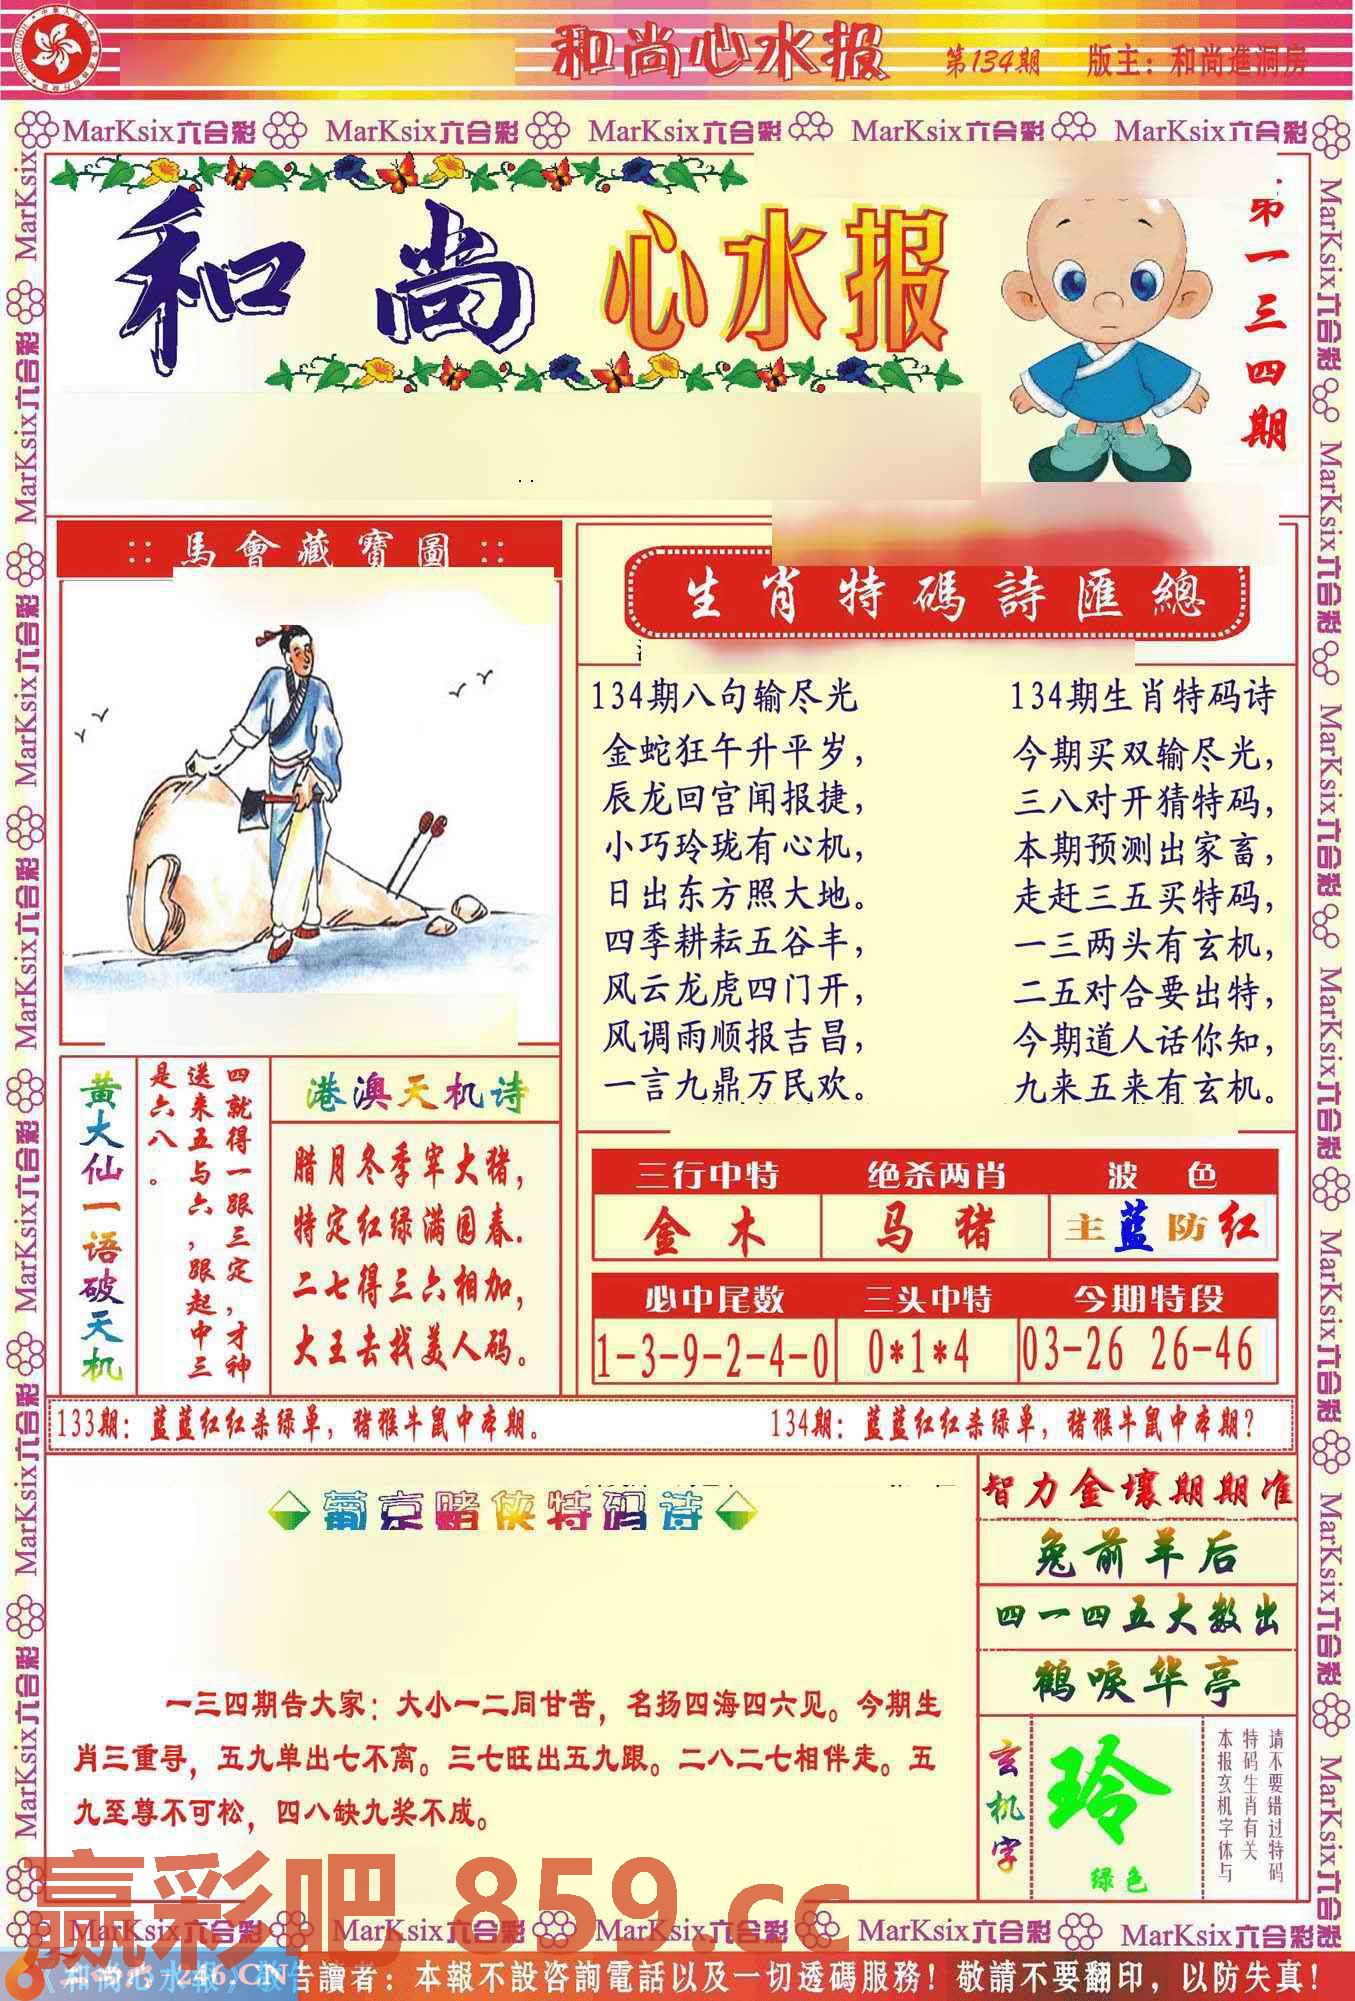 和尚心水报 第134期 版主：和尚進洞房
MarKsix六合彩 MarKsix六合彩 MarKsix六合彩 MarKsix六合彩 MarKsix六合彩
和尚心水报
第一三四期
:: 馬會藏寶圖 ::
生肖特碼詩匯總
134期八句输尽光
金蛇狂午升平岁，
辰龙回宫闻报捷，
小巧玲珑有心机，
日出东方照大地。
四季耕耘五谷丰，
风云龙虎四门开，
风调雨顺报吉昌，
一言九鼎万民欢。
134期生肖特码诗
今期买双输尽光，
三八对开猜特码，
本期预测出家畜，
走赶三五买特码，
一三两头有玄机，
二五对合要出特，
今期道人话你知，
九来五来有玄机。
黄大仙一语破天机
四就得一跟三定，才神
送来五与六，跟起中三
是六八。
港澳天机诗
腊月冬季宰大猪，
特定红绿满园春.
二七得三六相加，
大王去找美人码。
三行中特 绝杀两肖 波色
金木 马猪 主蓝防红
必中尾数 三头中特 今期特段
1-3-9-2-4-0 0*1*4 03-26 26-46
133期：蓝蓝红红杀绿单，猪猴牛鼠中本期。 134期：蓝蓝红红杀绿单，猪猴牛鼠中本期？
葡京赌侠特码诗
一三四期告大家：大小一二同甘苦，名扬四海四六见。今期生
肖三重寻，五九单出七不离。三七旺出五九跟。二八二七相伴走。五
九至尊不可松，四八缺九奖不成。
智力金壤期期准
兔前羊后
四一四五大数出
鹤唳华亭
玄机字
玲
绿色
请不要错过特码
特码生肖有关
本报玄机字体与
赢彩吧 859.cc
MarKsix六合彩 MarKsix六合彩 MarKsix六合彩 MarKsix六合彩 MarKsix六合彩
246.CN
《和尚心水報》敬告讀者：本報不設咨詢電話以及一切透碼服務！敬請不要翻印，以防失真！